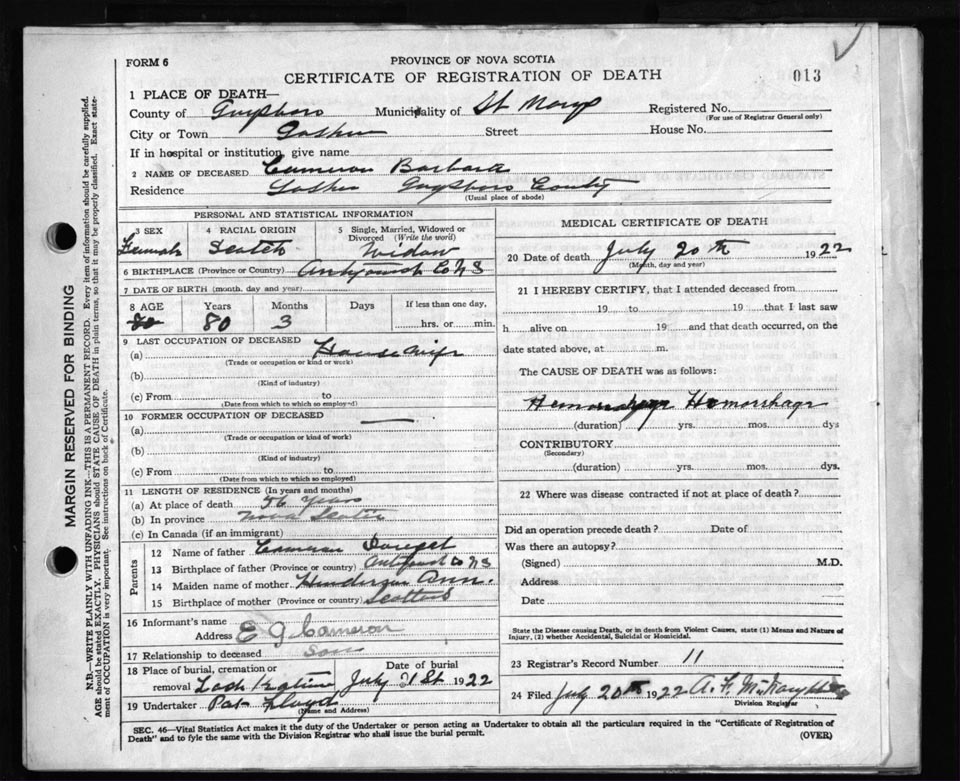 FORM 6
PROVINCE OF NOVA SCOTIA
CERTIFICATE OF REGISTRATION OF DEATH
013
1 PLACE OF DEATH—
County of Guysboro Municipality of St Marys Registered No.
(For use of Registrar General only)
City or Town Goshen Street House No.
If in hospital or institution, give name
2 NAME OF DECEASED Cameron Barbara
Residence Goshen Guysboro County
(Usual place of abode)
PERSONAL AND STATISTICAL INFORMATION
3 SEX 4 RACIAL ORIGIN 5 Single, Married, Widowed or
Divorced (Write the word)
Female Scotch Widow
6 BIRTHPLACE (Province or Country) Antigonish Co N S
7 DATE OF BIRTH (month, day and year)
8 AGE Years Months Days If less than one day,
80 80 3 hrs. or min.
9 LAST OCCUPATION OF DECEASED
(a) Housewife
(Trade or occupation or kind of work)
(b)
(Kind of industry)
(c) From to
(Date from which to which so employed)
10 FORMER OCCUPATION OF DECEASED
(a)
(Trade or occupation or kind of work)
(b)
(Kind of industry)
(c) From to
(Date from which to which so employed)
11 LENGTH OF RESIDENCE (In years and months)
(a) At place of death 56 years
(b) In province Nova Scotia
(c) In Canada (if an immigrant)
Parents
12 Name of father Cameron
13 Birthplace of father (Province or country) Co N S
14 Maiden name of mother Henderson Ann.
15 Birthplace of mother (Province or country) Scotland
16 Informant's name
Address E G Cameron
17 Relationship to deceased Son
18 Place of burial, cremation or Date of burial
removal Loch Katrine July 21st 1922
19 Undertaker Pat Floyd
(Name and Address)
MEDICAL CERTIFICATE OF DEATH
20 Date of death July 20th 1922
(Month, day and year)
21 I HEREBY CERTIFY, that I attended deceased from
19 to 19 that I last saw
h alive on 19 and that death occurred, on the
date stated above, at m.
The CAUSE OF DEATH was as follows:
Hemorrhage
(duration) yrs. mos. dys
CONTRIBUTORY
(Secondary)
(duration) yrs. mos. dys.
22 Where was disease contracted if not at place of death?
Did an operation precede death? Date of
Was there an autopsy?
(Signed) M.D.
Address
Date
State the Disease causing Death, or in death from Violent Causes, state (1) Means and Nature of
Injury, (2) whether Accidental, Suicidal or Homicidal.
23 Registrar's Record Number 11
24 Filed July 20th 1922 A. F. McNaughton
Division Registrar
SEC. 46—Vital Statistics Act makes it the duty of the Undertaker or person acting as Undertaker to obtain all the particulars required in the "Certificate of Registration of
Death" and to fyle the same with the Division Registrar who shall issue the burial permit.
(OVER)
MARGIN RESERVED FOR BINDING
N.B.—WRITE PLAINLY WITH UNFADING INK—THIS IS A PERMANENT RECORD. Every item of information should be carefully supplied.
AGE should be stated EXACTLY. PHYSICIANS should STATE CAUSE OF DEATH in plain terms, so that it may be properly classified. Exact state-
ment of OCCUPATION is very important. See instructions on back of Certificate.